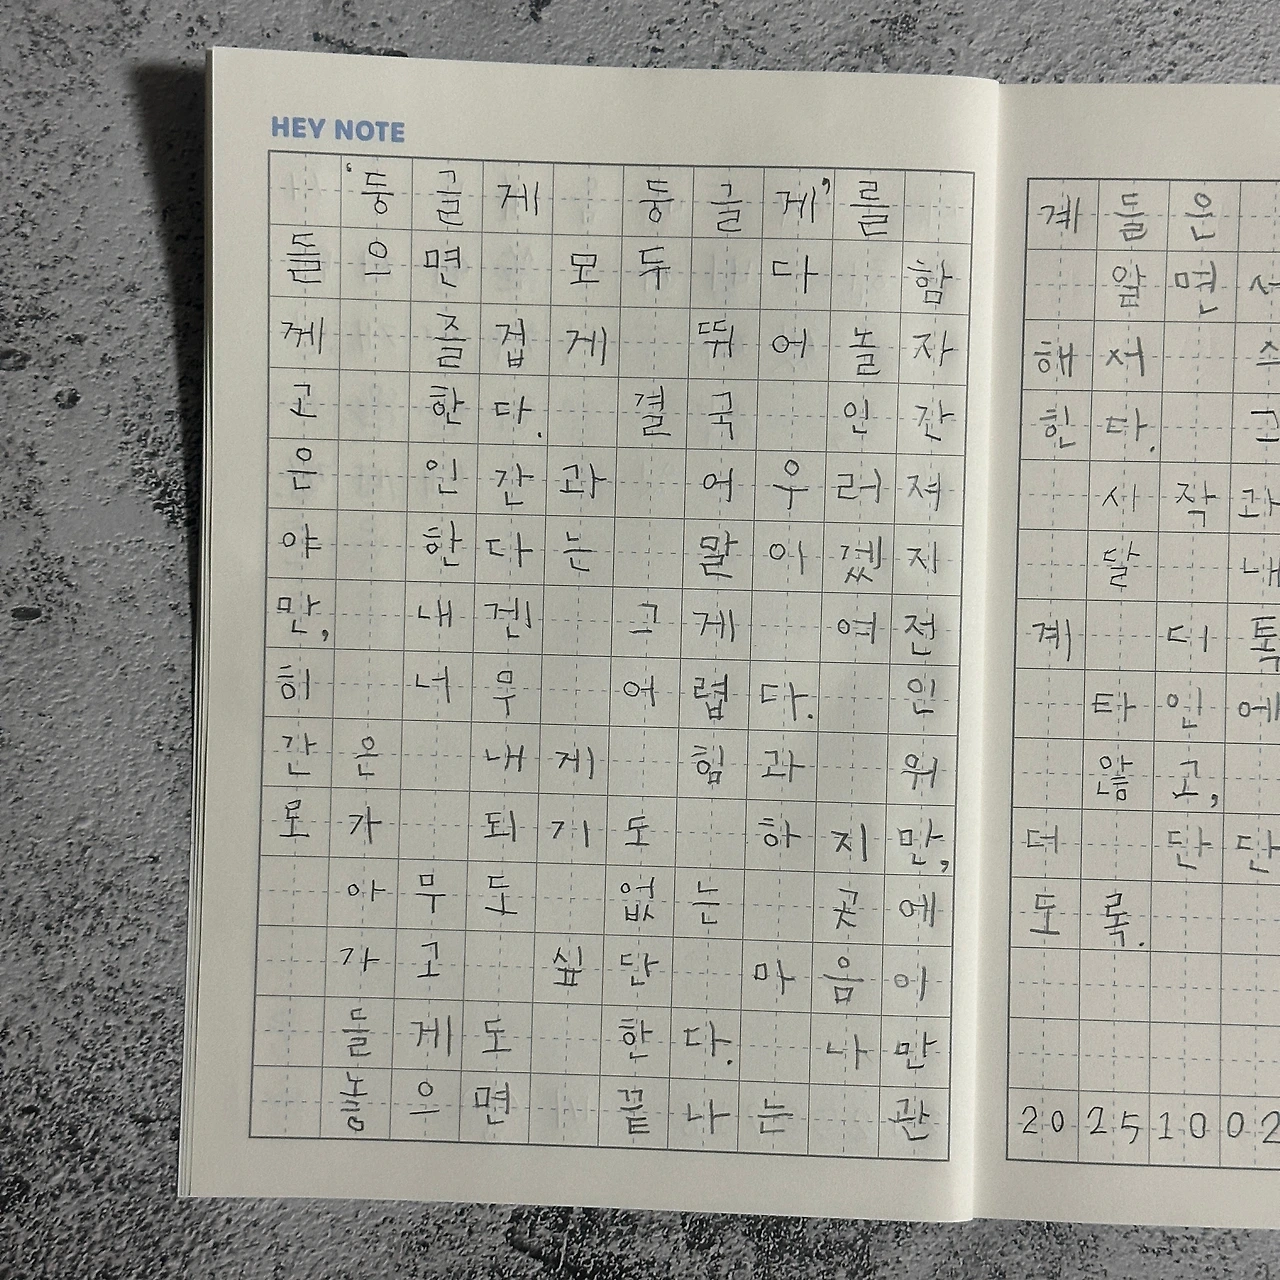 HEY NOTE
'둥글게 둥글게'를
들으면 모두 다 함
께 즐겁게 뛰어 놀자
고 한다. 결국 인간
은 인간과 어우러져
야 한다는 말이겠지
만, 내겐 그게 여전
히 너무 어렵다. 인
간은 내게 힘과 위
로가 되기도 하지만,
아무도 없는 곳에
가고 싶단 마음이
들게도 한다. 나만
놓으면 끝나는 관
계들은
앞면서
해서
힌다. 그
사작과
달 내
계 더 톡
타인에
않고,
더 단단
도록.
20251002